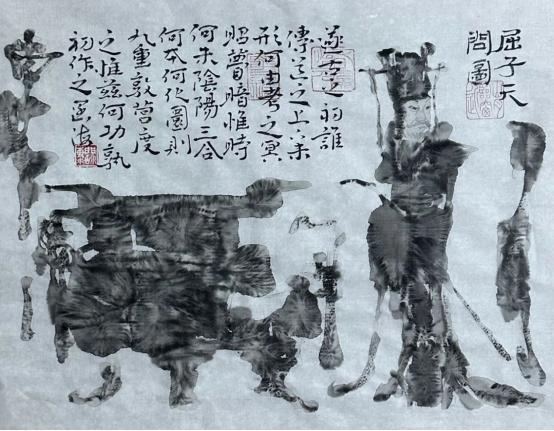 屈子天
問圖
遂古之初誰
傳道之上下未
形何由考之冥
昭瞢暗惟時
何未陰陽三合
何本何化圖則
九重孰營度
之惟兹何功孰
初作之